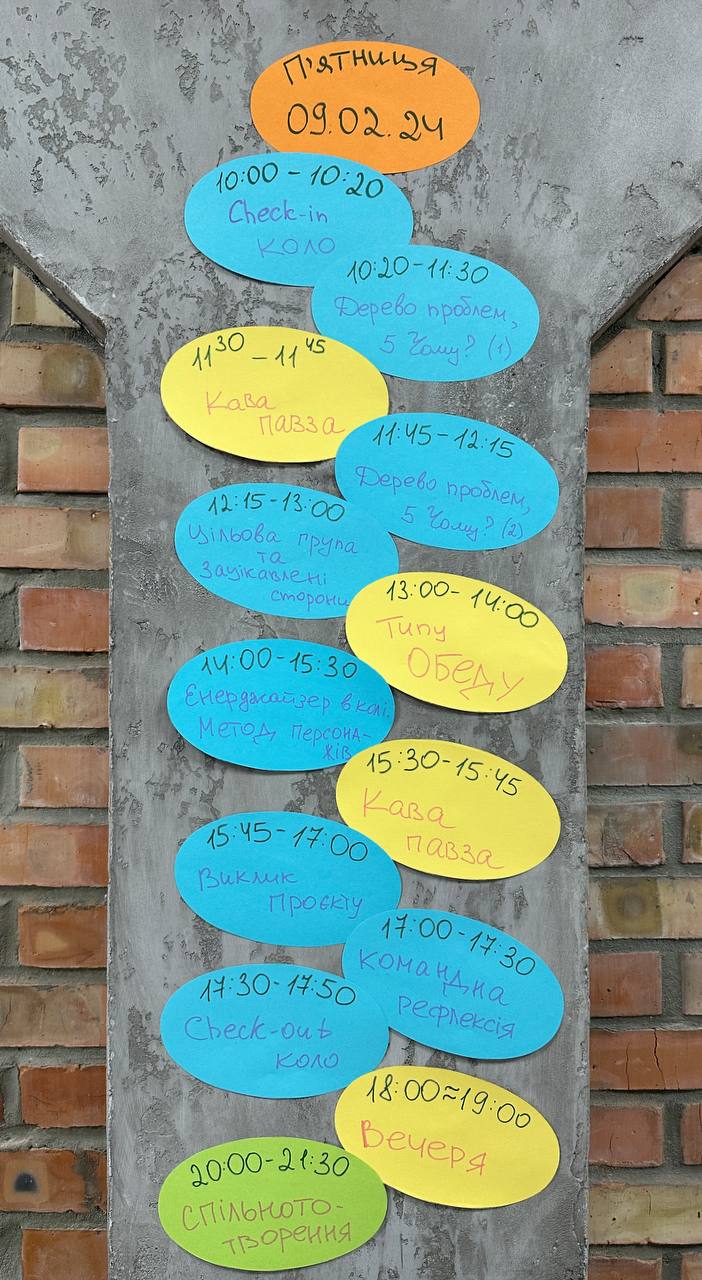 П'ятниця
09.02.24
10:00 - 10:20
Check-in
коло
10:20-11:30
Дерево проблем,
5 Чому? (1)
11 30 - 11 45
Кава
павза
11:45-12:15
Дерево проблем,
5 Чому? (2)
12:15-13:00
Цільова група
та
Зацікавлені
сторони
13:00-14:00
Типу
ОБЕДУ
14:00-15:30
Енерджайзер в колі.
Метод Персона-
жів
15:30-15:45
Кава
павза
15:45-17:00
Виклик
проєкту
17:00-17:30
Командна
рефлексія
17:30-17:50
Check-out
коло
18:00≈19:00
Вечеря
20:00-21:30
Спільното-
творення